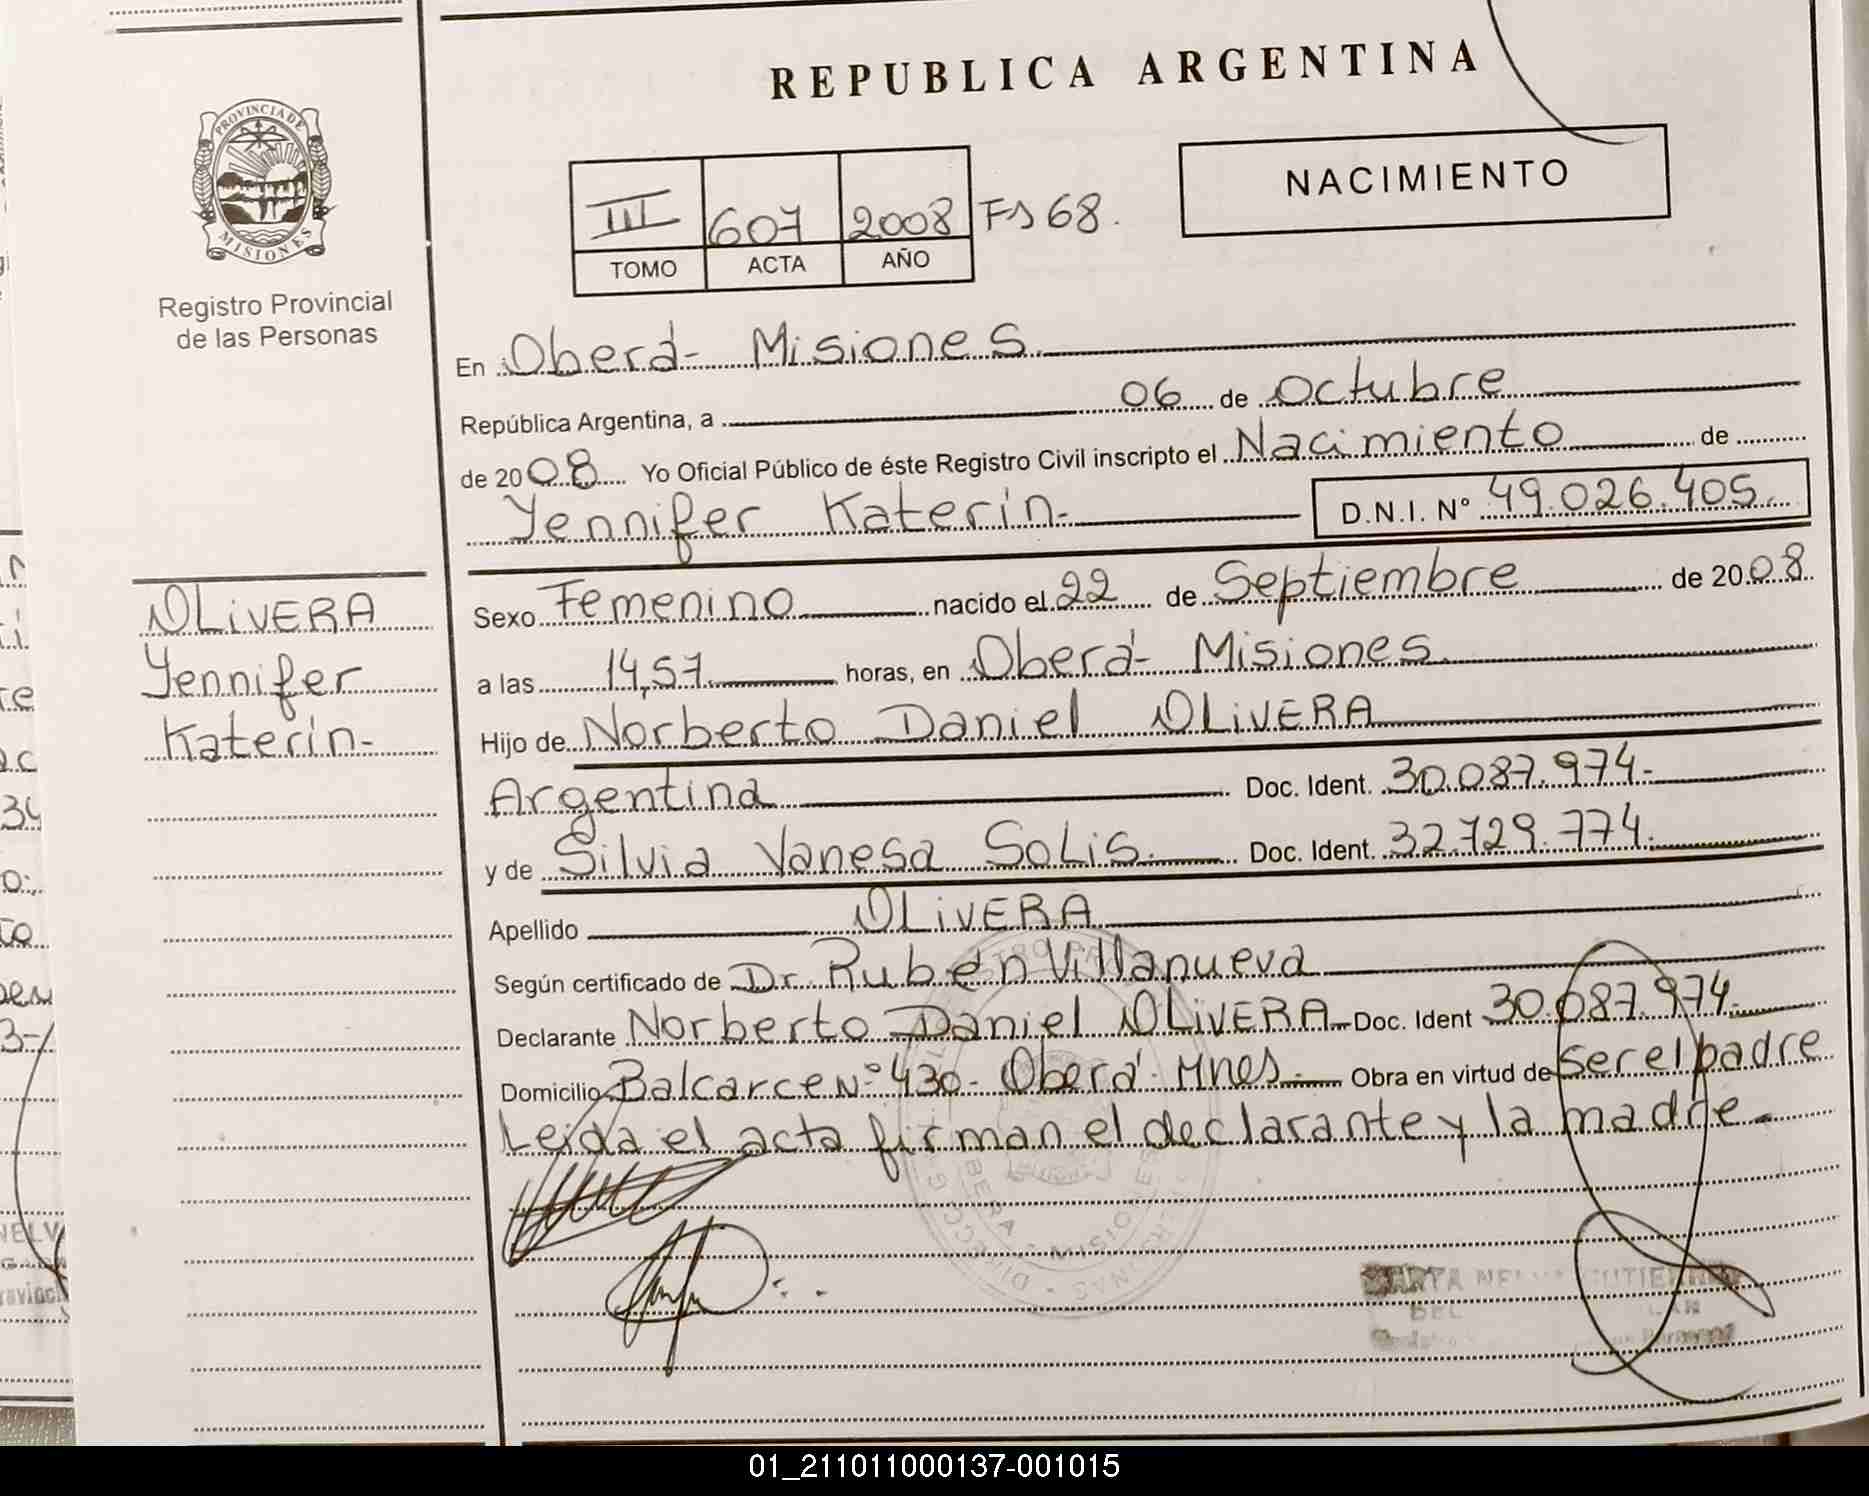 REPUBLICA ARGENTINA
PROVINCIA DE
MISIONES
Registro Provincial
de las Personas
NACIMIENTO
III 607 2008 Fs 68.
TOMO ACTA AÑO
En Oberá- Misiones
República Argentina, a 06 de Octubre
de 2008 Yo Oficial Público de éste Registro Civil inscripto el Nacimiento de
Yennifer Katerin- D.N.I. Nº 49.026.405
OLIVERA
Yennifer
Katerin-
Sexo Femenino nacido el 22 de Septiembre de 2008
a las 14,57 horas, en Oberá- Misiones
Hijo de Norberto Daniel OLIVERA
Argentina Doc. Ident. 30.087.974-
y de Silvia Vanesa SOLIS. Doc. Ident. 32.729.774.
Apellido OLIVERA
Según certificado de Dr. Ruben Villanueva
Declarante Norberto Daniel OLIVERA- Doc. Ident 30.087.974-
Domicilio Balcarce Nº 430- Oberá- Mnes- Obra en virtud de Ser el padre
Leida el acta firman el declarante y la madre-
01_211011000137-001015